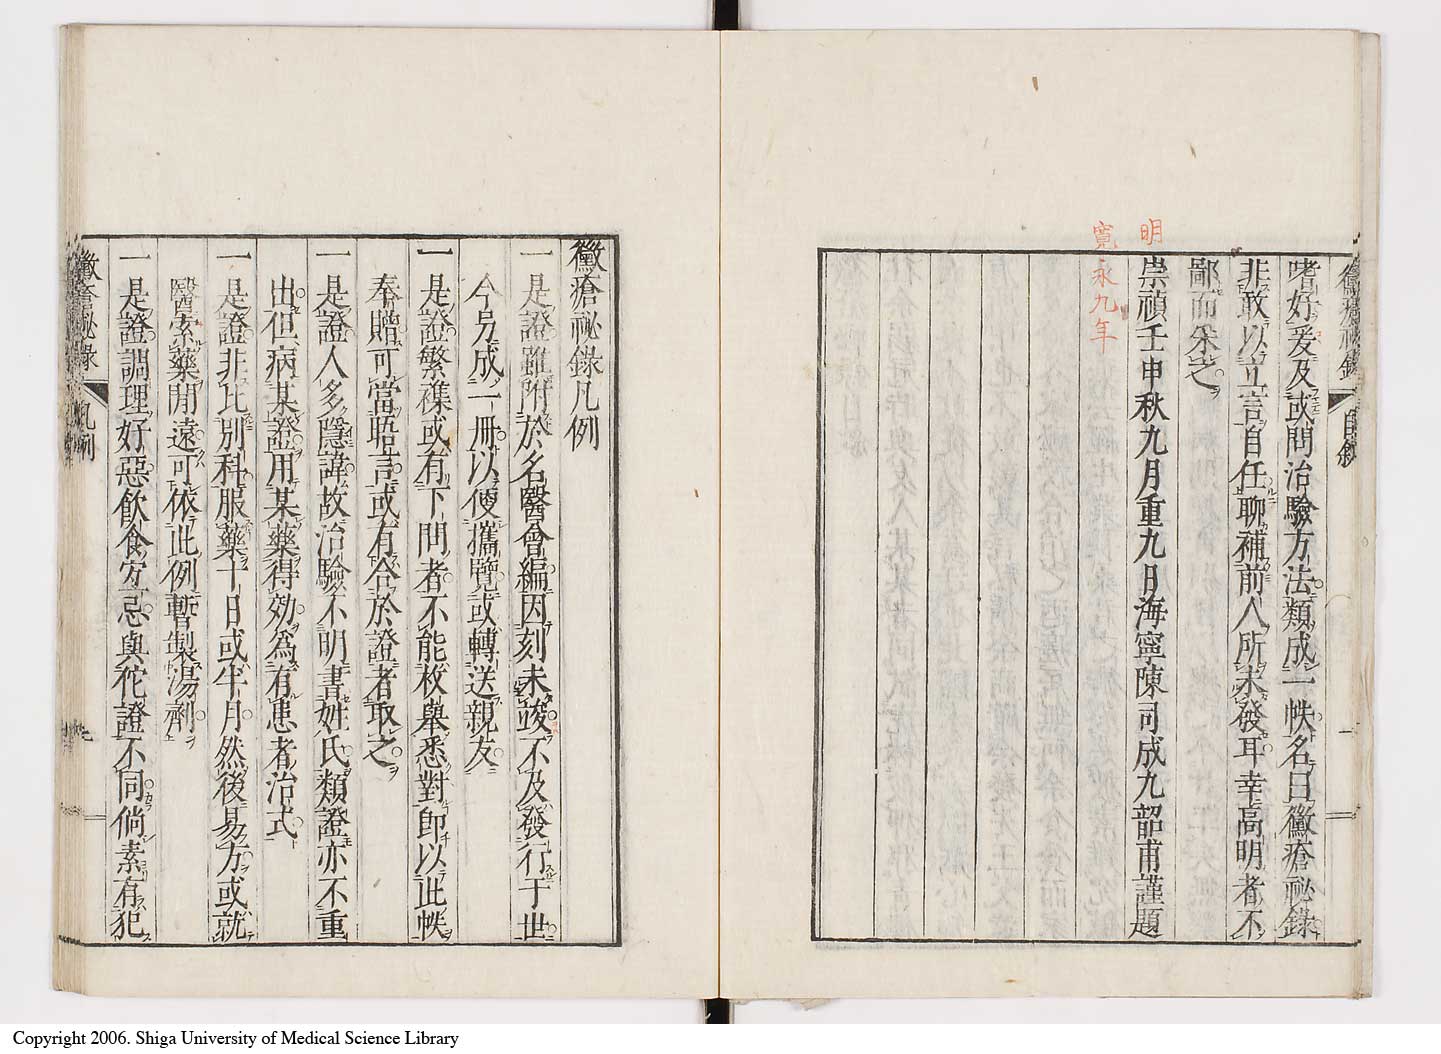 黴瘡祕錄 自敘 一
嗜好爰及或問治驗方法類成一帙名曰黴瘡祕錄
非敢以立言自任聊補前人所未發耳幸高明者不
鄙而采之
明
崇禎壬申秋九月重九日海寧陳司成九韶甫謹題
寬永九年
黴瘡祕錄凡例
一是證雖附於名醫會編因刻未竣不及發行于世
今另成一冊以便攜覽或轉送親友
一是證繁襍或有下問者不能枚舉悉對即以此帙
奉贈可當晤言或有合於證者取之
一是證人多隱諱故治驗不明書姓氏類證亦不重
出但病某證用某藥得効為有患者治式
一是證非比別科服藥十日或半月然後易方或就
醫索藥間遠可依此例暫製湯劑
一是證調理好惡飲食宜忌與佗證不同倘素有犯
黴瘡祕錄 凡例